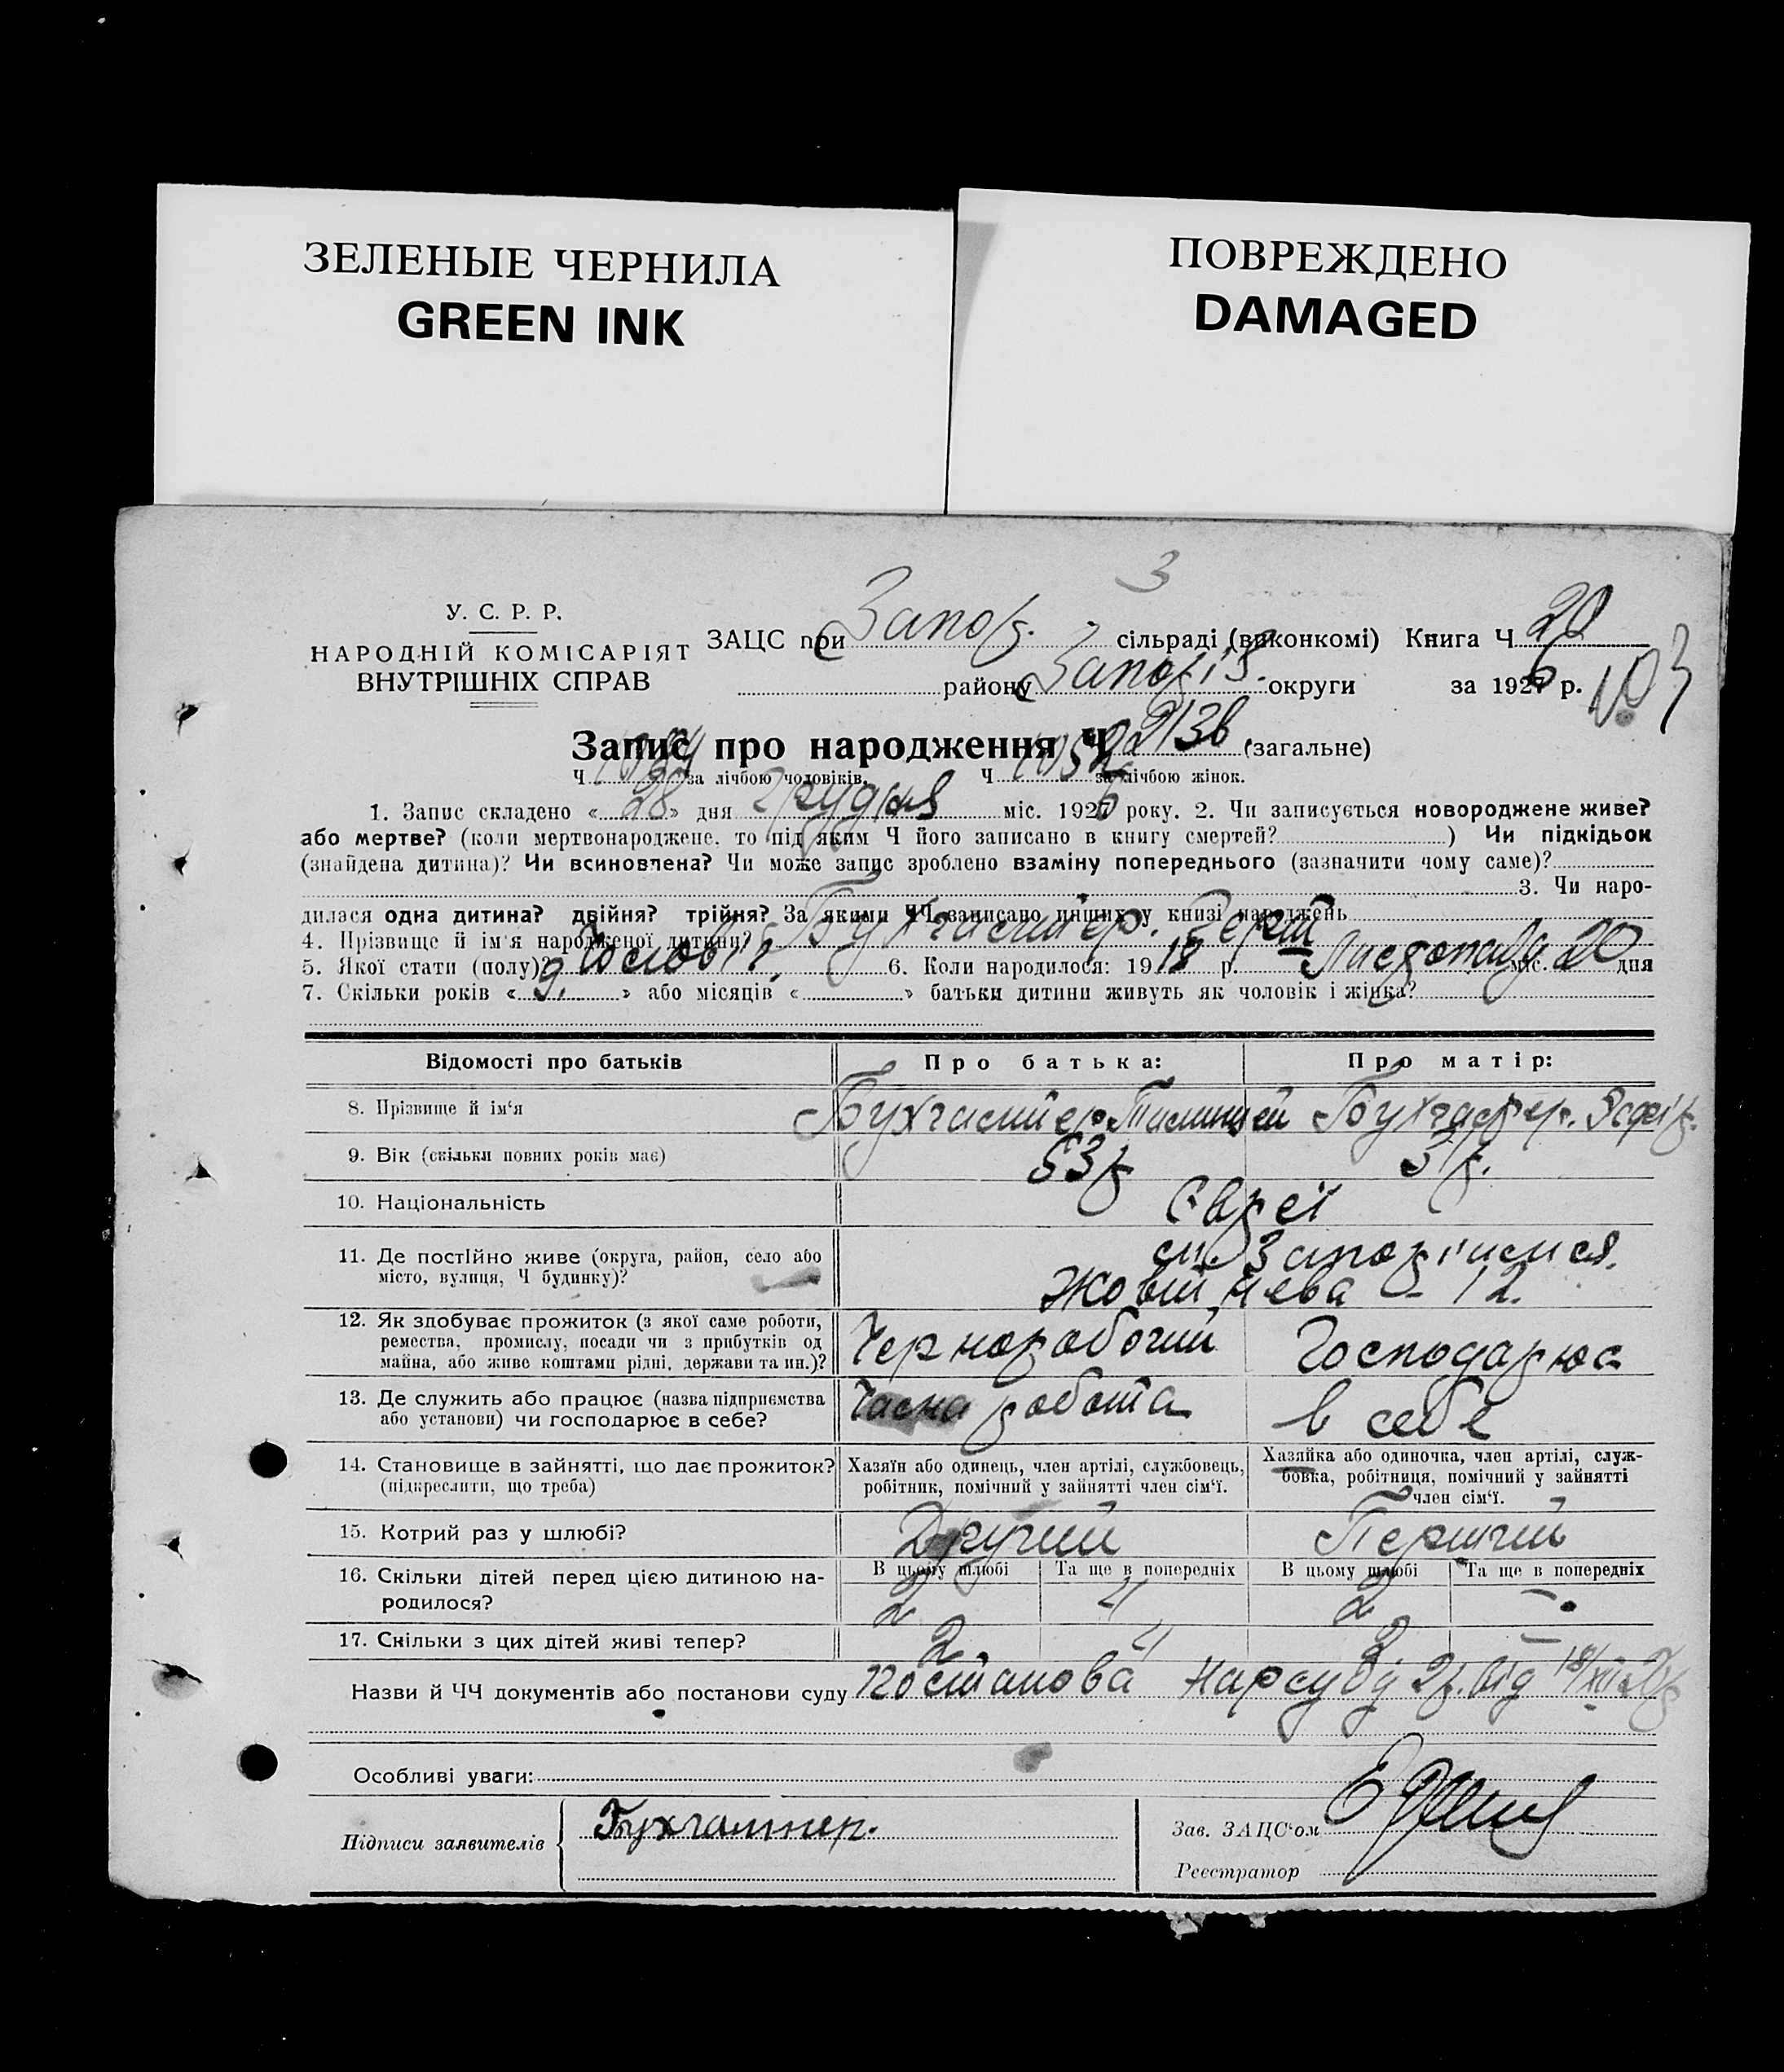 ЗЕЛЕНЫЕ ЧЕРНИЛА
GREEN INK
ПОВРЕЖДЕНО
DAMAGED
3
У. С. Р. Р.
НАРОДНІЙ КОМІСАРІЯТ
ВНУТРІШНІХ СПРАВ
ЗАЦС при Запор. сільраді (виконкомі) Книга Ч 20
району Запоріз. округи за 1926 р.
103
Запис про народження Ч 2136 (загальне)
Ч за лічбою чоловіків. Ч за лічбою жінок.
1. Запис складено « 28 » дня Грудня міс. 1926 року. 2. Чи записується новороджене живе?
або мертве? (коли мертвонароджене, то під яким Ч його записано в книгу смертей? ) Чи підкідьок
(знайдена дитина)? Чи всиновлена? Чи може запис зроблено взаміну попереднього (зазначити чому саме)?
3. Чи наро-
дилася одна дитина? двійня? трійня? За якими ЧЧ записано инших у книзі народжень
4. Прізвище й ім'я народженої дитини?
5. Якої стати (полу)? Чоловіч. 6. Коли народилося: 1918 р. Листопада міс. 20 дня
7. Скільки років « 9. » або місяців « » батьки дитини живуть як чоловік і жінка?
Відомості про батьків
Про батька:
Про матір:
8. Прізвище й ім'я
9. Вік (скільки повних років має) 53 р.
10. Національність Євреї
11. Де постійно живе (округа, район, село або
місто, вулиця, Ч будинку)?
м. Запоріжжя.
Жовтнева - 12.
12. Як здобуває прожиток (з якої саме роботи,
ремества, промислу, посади чи з прибутків од
майна, або живе коштами рідні, держави та ин.)?
Чернорабочий Господарює
13. Де служить або працює (назва підприємства
або установи) чи господарює в себе?
Часна робота в себе
14. Становище в зайнятті, що дає прожиток?
(підкреслити, що треба)
Хазяїн або одинець, член артілі, службовець,
робітник, помічний у зайнятті член сім'ї.
Хазяйка або одиночка, член артілі, служ-
бовка, робітниця, помічний у зайнятті
член сім'ї.
15. Котрий раз у шлюбі? Другий Перший
16. Скільки дітей перед цією дитиною на-
родилося?
В цьому шлюбі Та ще в попередніх В цьому шлюбі Та ще в попередніх
2 4 2 -
17. Скільки з цих дітей живі тепер? 2 4 2 -
Назви й ЧЧ документів або постанови суду Постанова Нарсуду 2 р. від
Особливі уваги:
Підписи заявителів Бухгалтер.
Зав. ЗАЦС'ом
Реєстратор